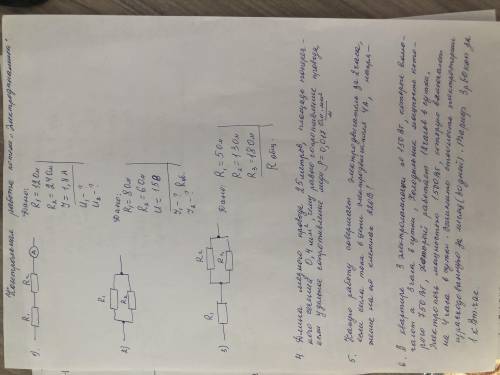 Контрольная работа по теме: "Электродинамика".
1)
R₁ R₂ A
Дано:
R₁ = 12 Ом
R₂ = 24 Ом
J = 1,8 А
U₁ - ?
U₂ - ?
2)
R₁
R₂
Дано:
R₁ = 8 Ом
R₂ = 6 Ом
U = 15 В
J₁ - ?
J₂ - ?
3)
R₁ R₂
R₃
Дано: R₁ = 5 Ом
R₂ = 13 Ом
R₃ = 18 Ом
R общ.
4. Длина медного провода 25 метров, площадь попереч-
ного сечения 0,4 мм², чему равно сопротивление провода,
если удельное сопротивление меди ρ = 0,018 Ом·мм²/м
5. Какую работу совершает электродвигатель за 2 часа,
если сила тока в цепи электродвигателя 4А, напря-
жение на его клеммах 220В?
6. В квартире 3 электролампочки по 150 Вт, которые вклю-
чают в 3 часа в сутки. Холодильник мощностью кото-
рого 750 Вт, который работает часов в сутки.
Электропечь мощностью 1500 Вт, которую включают
на 4 часа в сутки. стоимость электроэнергии
израсходованную за месяц (30 дней). Тариф: 3 р. 80 коп за
1 кВт.час.